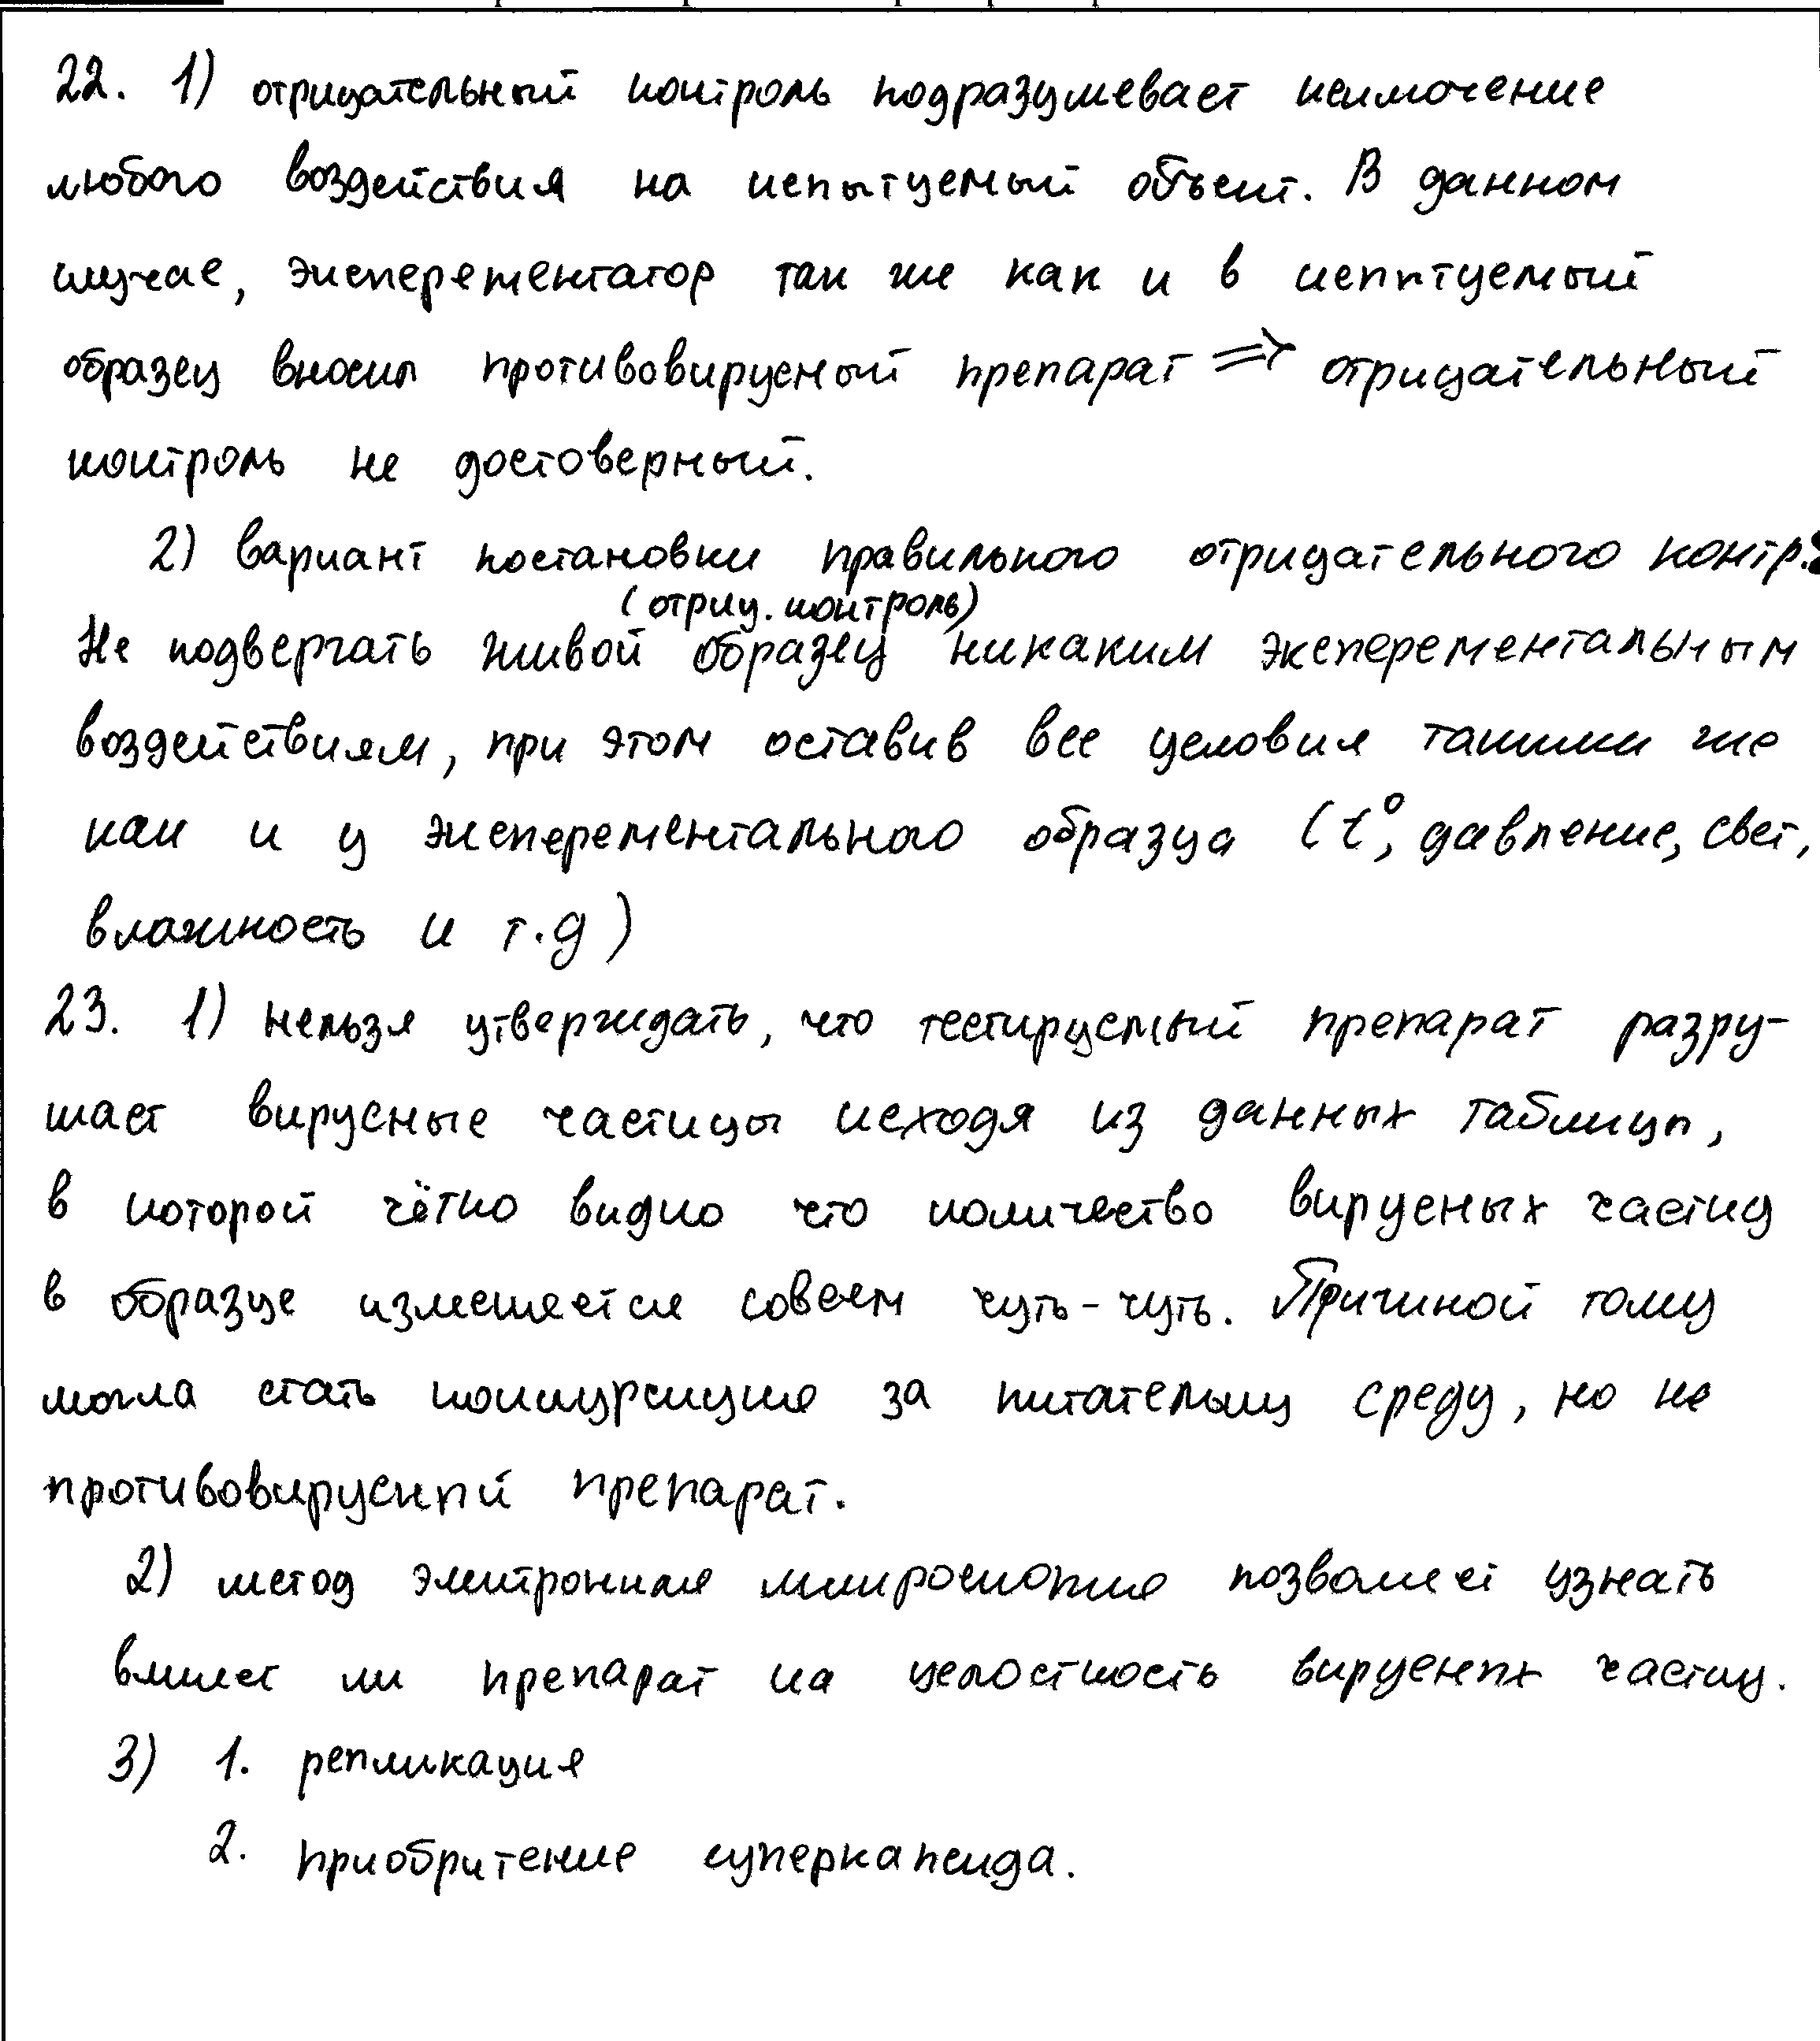 22. 1) отрицательный контроль подразумевает исключение
любого воздействия на испытуемый объект. В данном
случае, эксперементатор так же как и в испытуемый
образец вносил противовирусный препарат ⇒ отрицательный
контроль не достоверный.
2) вариант постановки правильного отрицательного контр.:
(отриц. контроль)
Не подвергать живой образец никаким эксперементальным
воздействиям, при этом оставив все условия такими же
как и у эксперементального образца (t°, давление, свет,
влажность и т.д)
23. 1) нельзя утверждать, что тестируемый препарат разру-
шает вирусные частицы исходя из данных таблицы,
в которой чётко видно что количество вирусных частиц
в образце изменяется совсем чуть-чуть. Причиной тому
могла стать конкуренция за питательну среду, но не
противовирусный препарат.
2) метод электронная микроскопия позволяет узнать
влияет ли препарат на целостность вирусных частиц.
3) 1. репликация
2. приобритение суперкапсида.